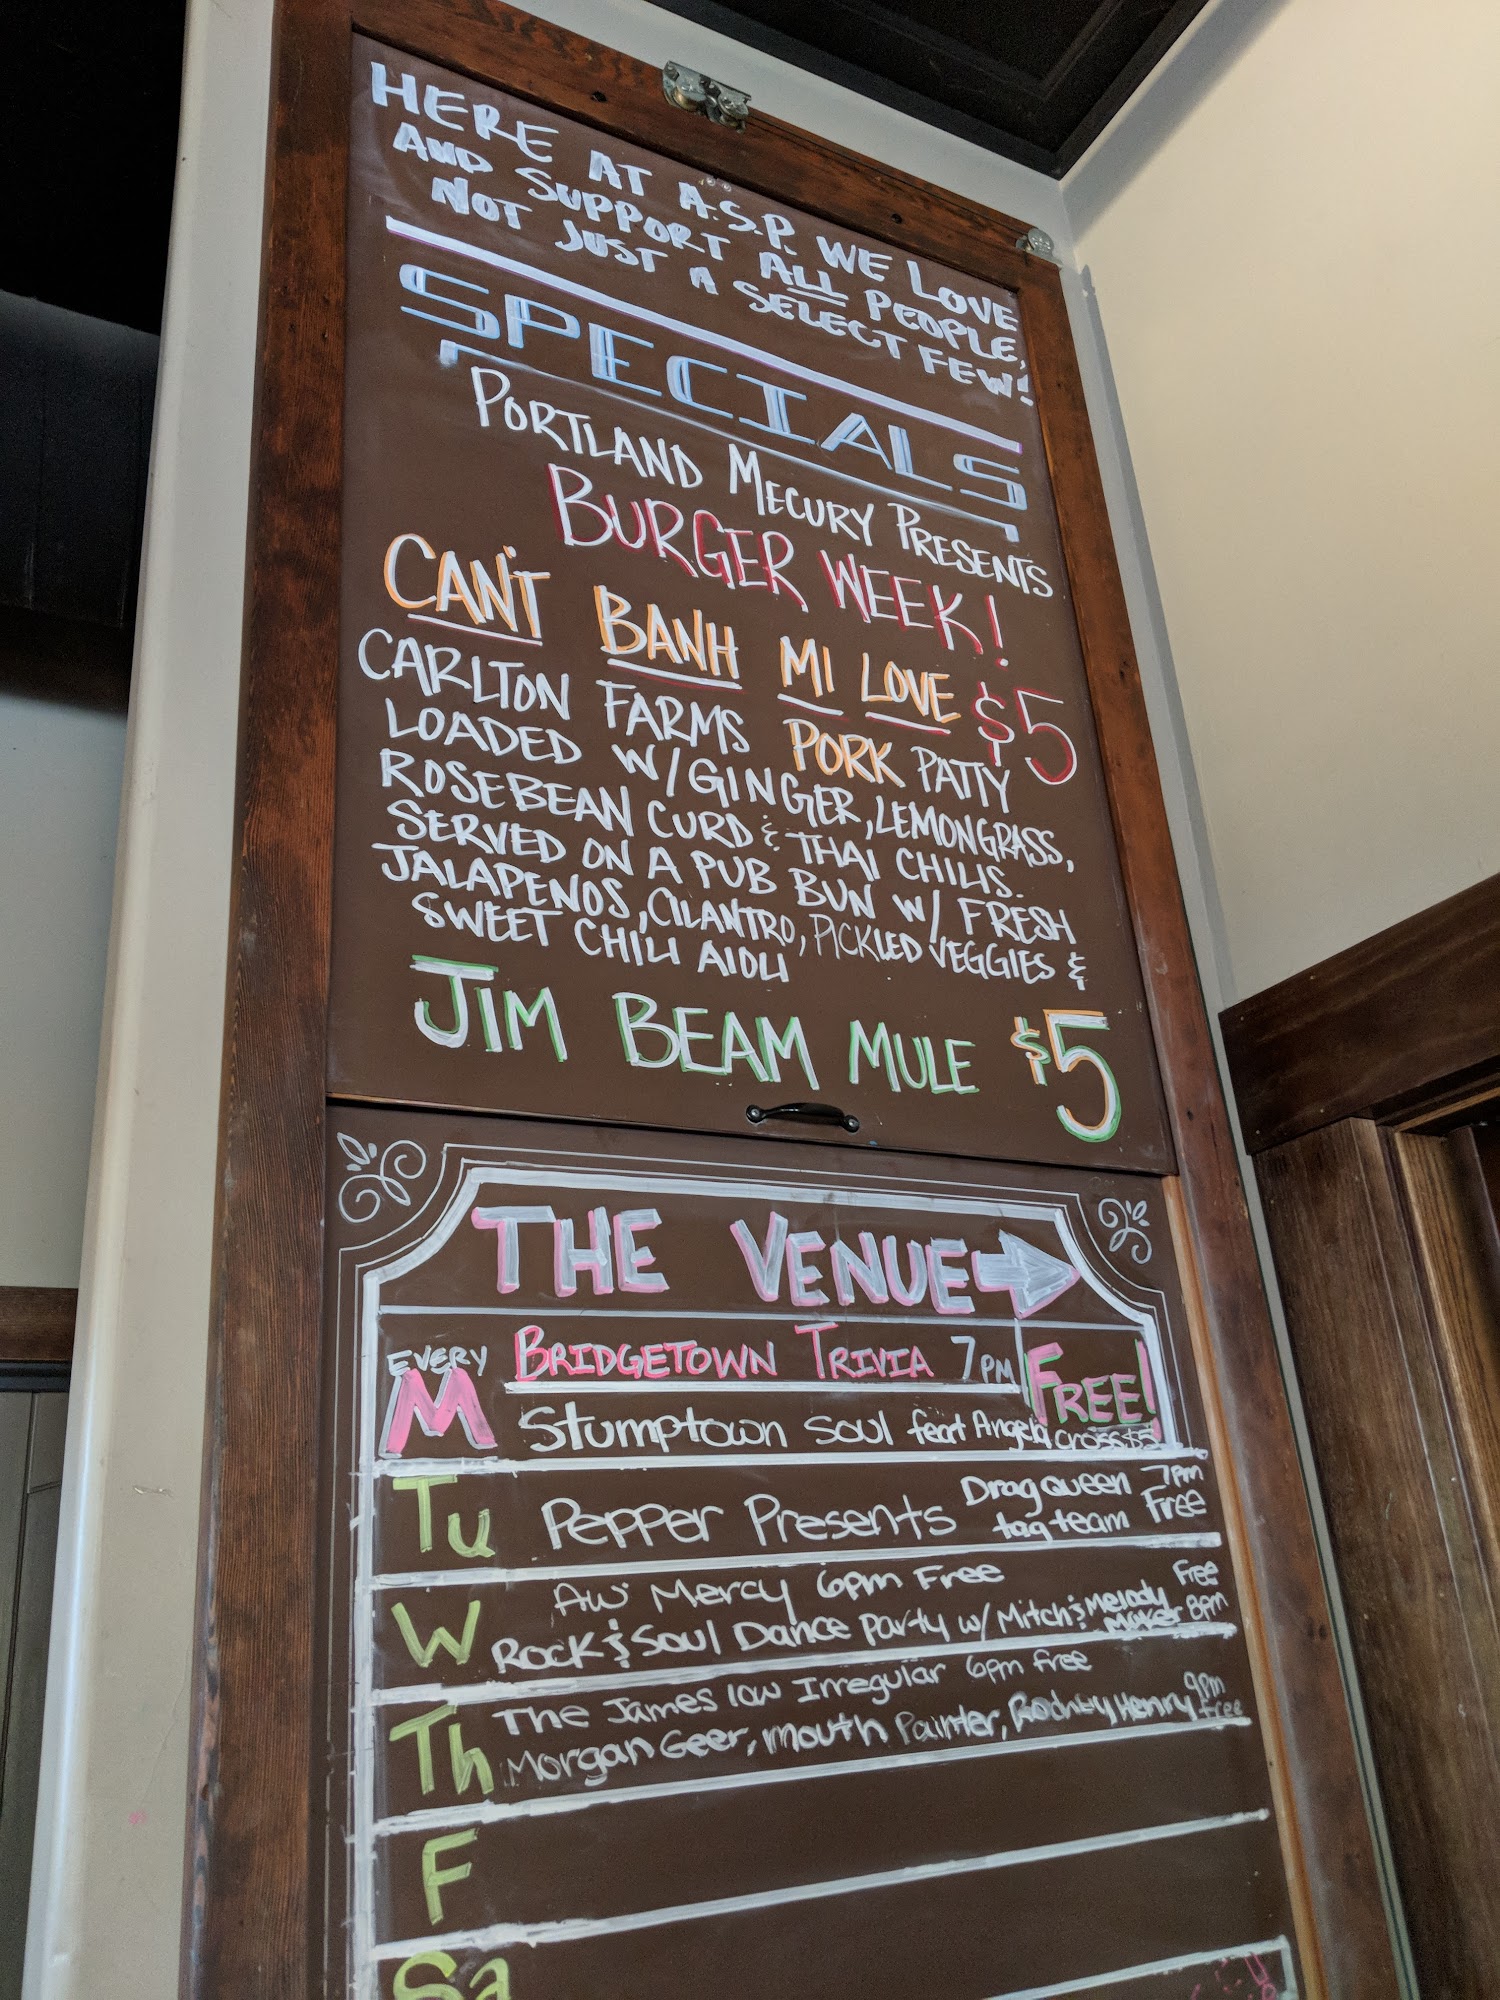 HERE AT A.S.P. WE LOVE
AND SUPPORT ALL PEOPLE,
NOT JUST A SELECT FEW!
SPECIALS
PORTLAND MECURY PRESENTS
BURGER WEEK!
CAN'T BANH MI LOVE $5
CARLTON FARMS PORK PATTY
LOADED W/GINGER, LEMONGRASS,
ROSEBEAN CURD & THAI CHILIS.
SERVED ON A PUB BUN W/ FRESH
JALAPENOS, CILANTRO, PICKLED VEGGIES &
SWEET CHILI AIOLI
JIM BEAM MULE $5
THE VENUE
EVERY M BRIDGETOWN TRIVIA 7PM FREE!
Stumptown Soul feat Angela Cross $5
Tu Pepper Presents Drag queen tag team 7pm Free
W Aw Mercy 6pm Free
Rock & Soul Dance Party w/ Mitch & Melody Maker Free 8pm
Th The James low Irregular 6pm free
Morgan Geer, mouth Painter, Rodney Henry 9pm free
F
Sa